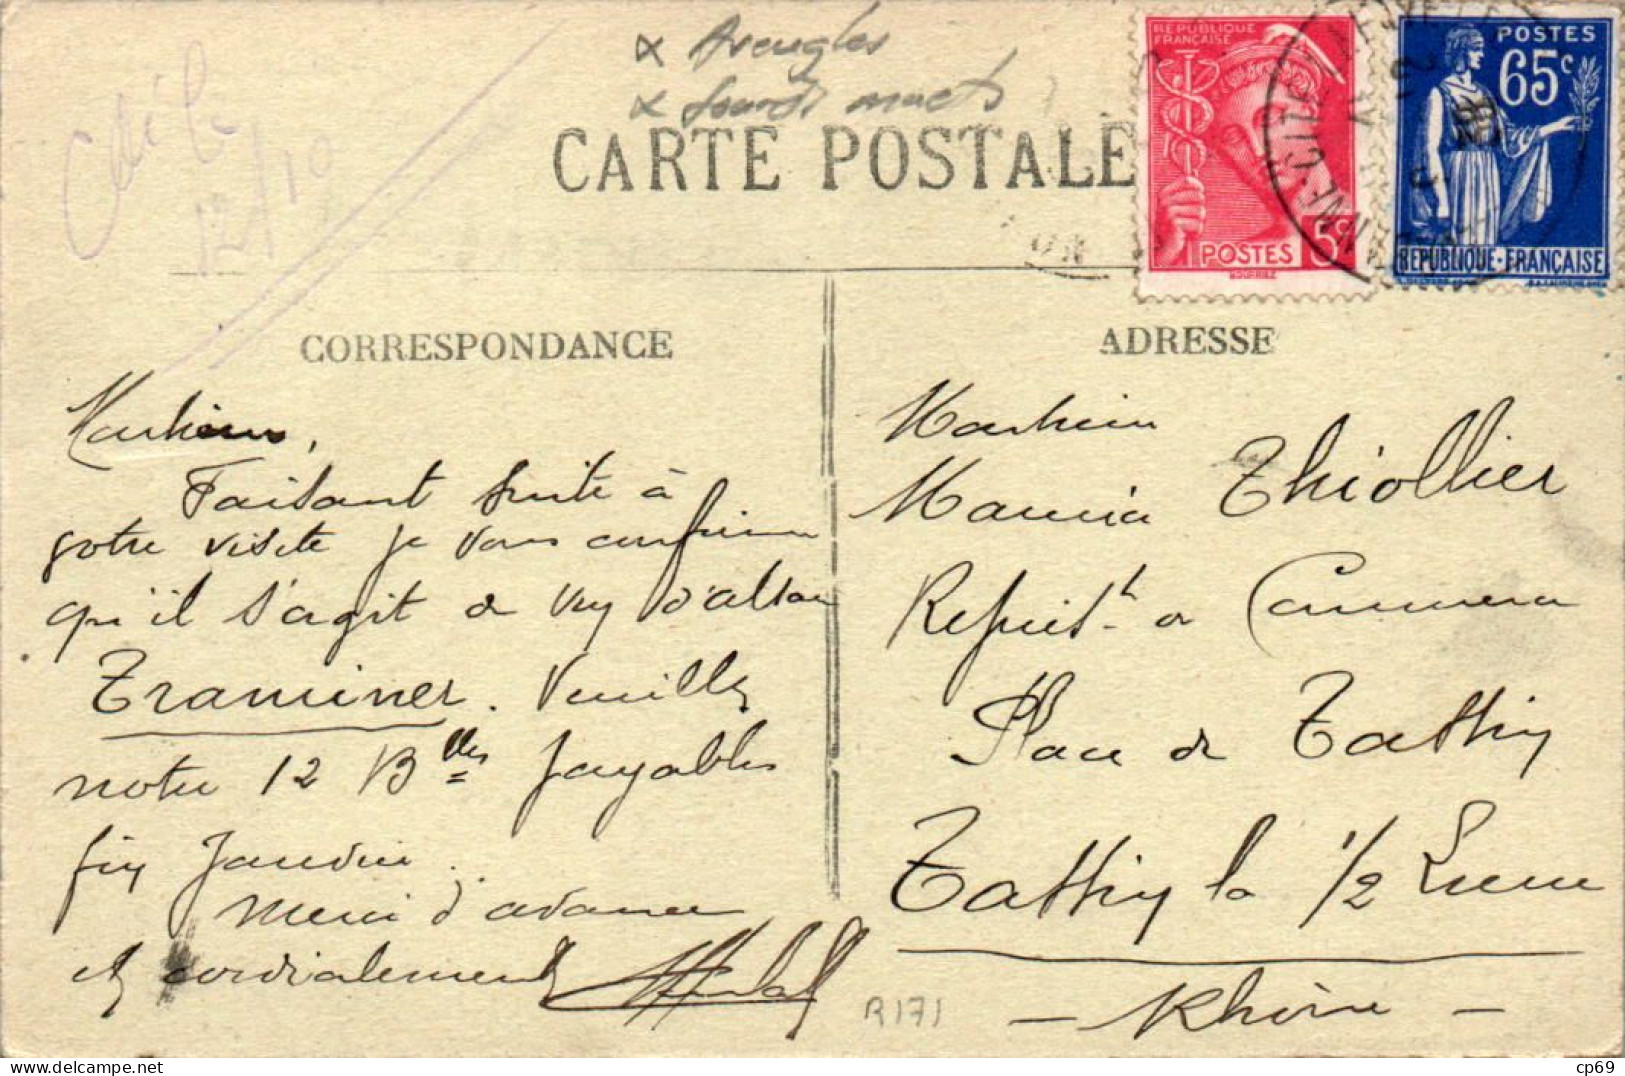 x Aveugles
x Sourds muets
12/10
CARTE POSTALE
RÉPUBLIQUE
FRANÇAISE
POSTES 5c
POSTES
65c
RÉPUBLIQUE-FRANÇAISE
CORRESPONDANCE
Monsieur,
Faisant suite à
votre visite je vous confirme
qu'il s'agit de Vin d'alsace
Traminer. Veuillez
noter 12 Blles payables
fin Janvier.
Merci d'avance
et cordialement
ADRESSE
Monsieur
Maurice Thiollier
Représt de Commerce
Place de Tassin
Tassin la 1/2 Lune
- Rhône -
R171
cp69